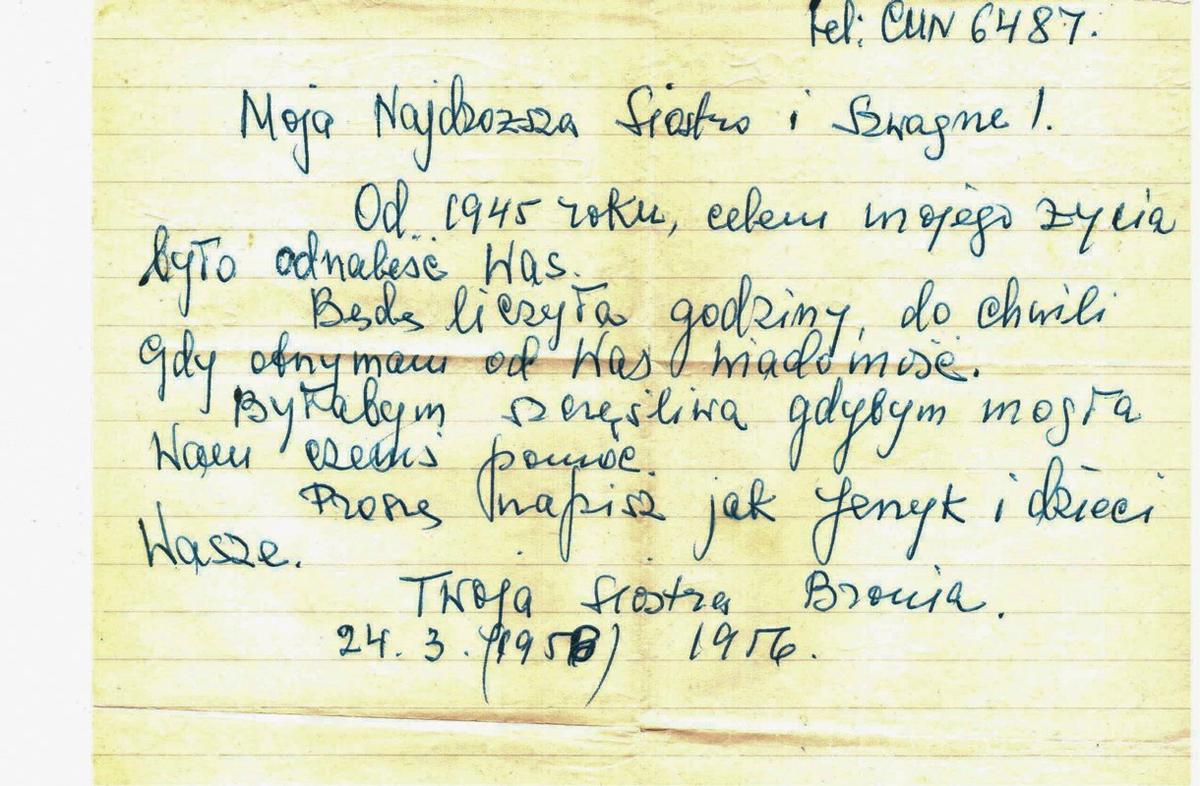 Tel: CUN 6487.
Moja Najdrozsza Siostro i Szwagrze!.
Od 1945 roku, celem mojego zycia
było odnaleść Was.
Będę liczyła godziny, do chwili
Gdy otrzymam od Was wiadomość.
Byłabym szczęśliwa gdybym mogła
Wam czemś pomóc.
Proszę napisz jak Jerzyk i dzieci
Wasze.
Twoja Siostra Bronia.
24. 3. (1956) 1956.